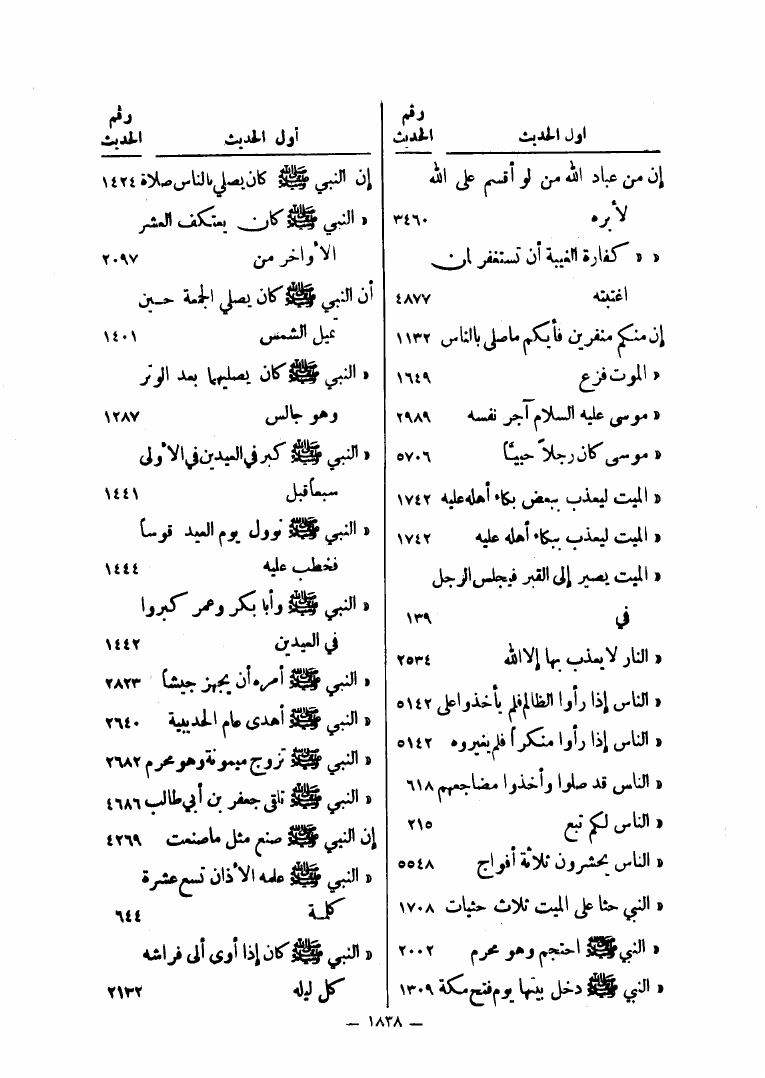 رقم
اول الحديث الحديث
إن من عباد الله من لو أقسم على الله
لأبره ٣٤٦٠
« « كفارة الغيبة أن تستغفر لمن
اغتبته ٤٨٧٧
إن منكم منفرين فأيكم ماصلى بالناس ١١٣٢
« الموت فزع ١٦٤٩
« موسى عليه السلام آجر نفسه ٢٩٨٩
« موسى كان رجلاً حيياً ٥٧٠٦
« الميت ليعذب ببعض بكاء أهله عليه ١٧٤٢
« الميت ليعذب ببكاء أهله عليه ١٧٤٢
« الميت يصير إلى القبر فيجلس الرجل
في ١٣٩
« النار لا يعذب بها إلا الله ٢٥٣٤
« الناس إذا رأوا الظالم فلم يأخذوا على ٥١٤٢
« الناس إذا رأوا منكراً فلم يغيروه ٥١٤٢
« الناس قد صلوا وأخذوا مضاجعهم ٦١٨
« الناس لكم تبع ٢١٥
« الناس يحشرون ثلاثة أفواج ٥٥٤٨
« النبي حثا على الميت ثلاث حثيات ١٧٠٨
« النبي ﷺ احتجم وهو محرم ٢٠٠٢
« النبي ﷺ دخل بيتها يوم فتح مكة ١٣٠٩
رقم
أول الحديث الحديث
إن النبي ﷺ كان يصلي بالناس صلاة ١٤٢٤
« النبي ﷺ كان يعتكف العشر
الأواخر من ٢٠٩٧
أن النبي ﷺ كان يصلي الجمعة حين
تميل الشمس ١٤٠١
« النبي ﷺ كان يصليهما بعد الوتر
وهو جالس ١٢٨٧
« النبي ﷺ كبر في العيدين في الأولى
سبعاً قبل ١٤٤١
« النبي ﷺ نوول يوم العيد قوساً
فخطب عليه ١٤٤٤
« النبي ﷺ وأبا بكر وعمر كبروا
في العيدين ١٤٤٢
« النبي ﷺ أمره أن يجهز جيشاً ٢٨٢٣
« النبي ﷺ أهدى عام الحديبية ٢٦٤٠
« النبي ﷺ تزوج ميمونة وهو محرم ٢٦٨٢
« النبي ﷺ تلقى جعفر بن أبي طالب ٤٦٨٦
إن النبي ﷺ صنع مثل ماصنعت ٤٢٦٩
« النبي ﷺ علمه الأذان تسع عشرة
كلمة ٦٤٤
« النبي ﷺ كان إذا أوى ألى فراشه
كل ليله ٢١٣٢
— ١٨٣٨ —